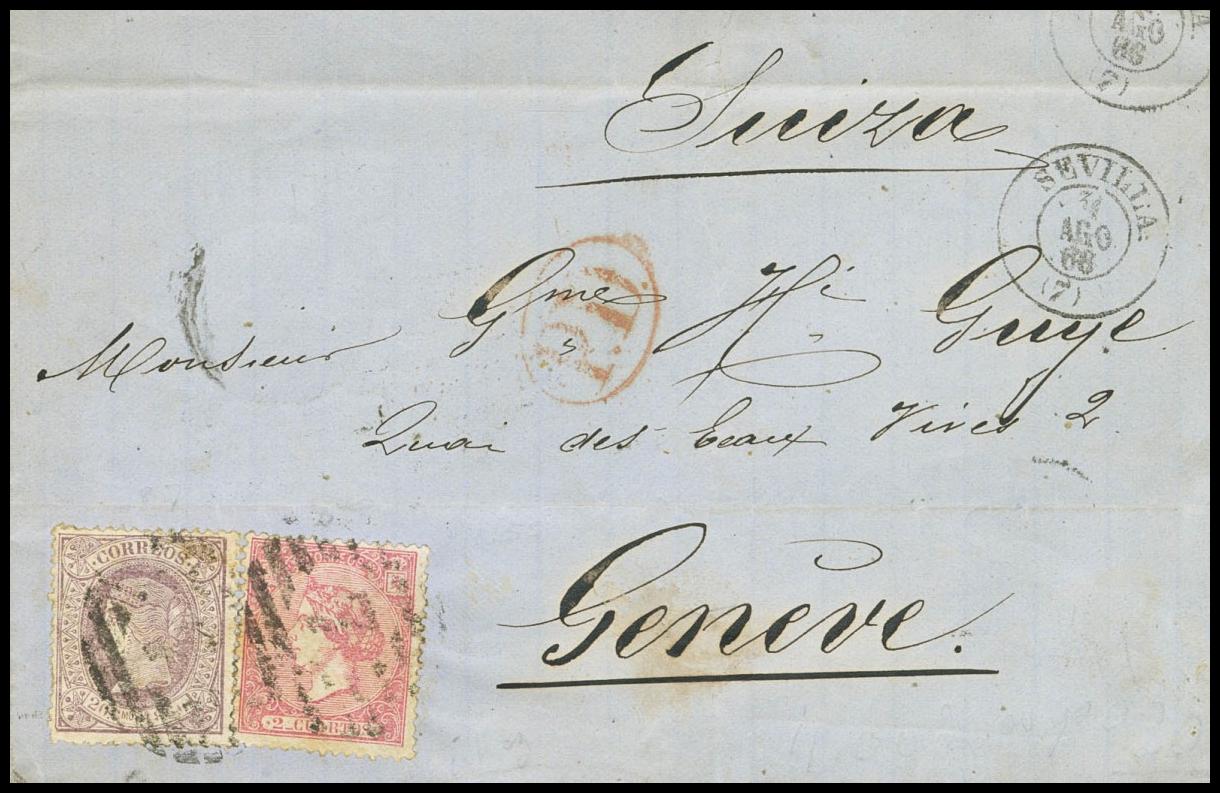 AGO
66
(7)
Suiza
SEVILLA
31
AGO
66
(7)
P.D.
Monsieur Gme Hi Guye
Quai des Eaux Vives 2
Genève.
CORREOS
2 CUARTOS